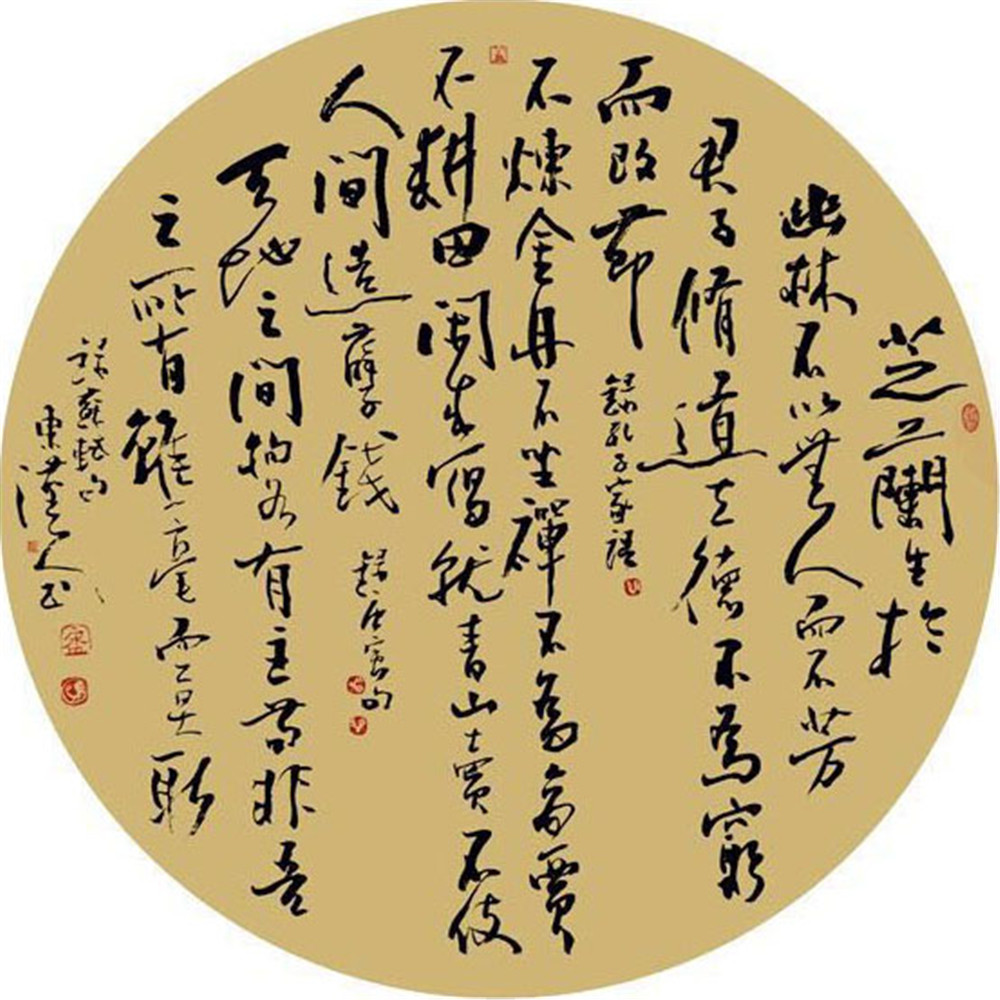 芝蘭生於
幽林不以無人而不芳
君子脩道立德不為窮
而改節
錄孔子家語
不煉金丹不坐禪不為商賈
不耕田閑來寫就青山賣不使
人間造孽錢
錄唐寅句
天地之間物各有主苟非吾
之所有雖一毫而莫取
錄蘇軾句
東漢人書